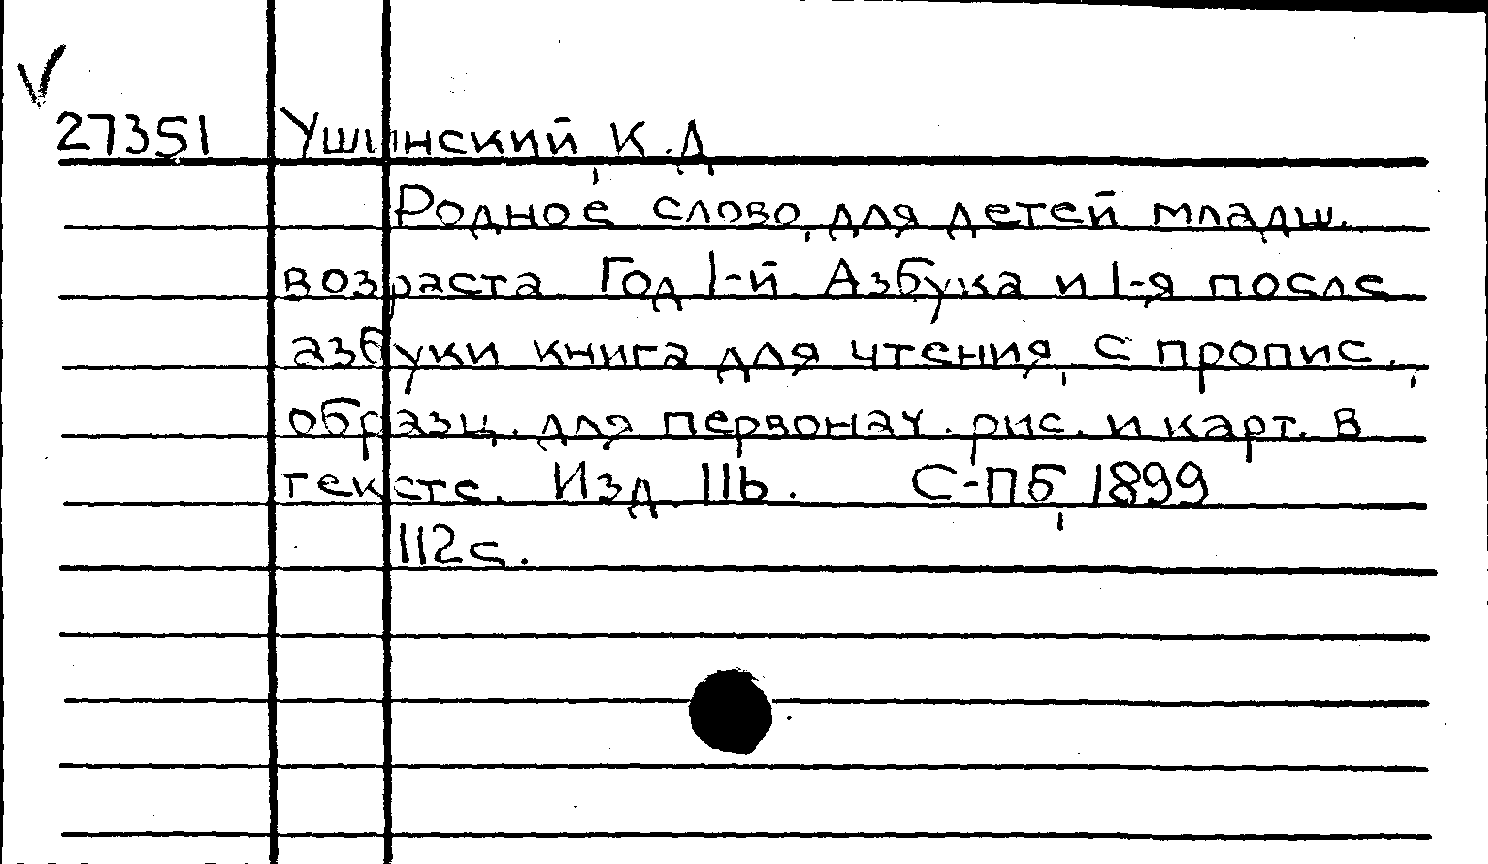 V
27351 Ушинский, К.Д
Родное слово, для детей младш.
возраста Год I-й Азбука и I-я после
азбуки книга для чтения, с пропис.,
образц. для первонач. рис. и карт. в
тексте. Изд 116. С-ПБ, 1899
112с.